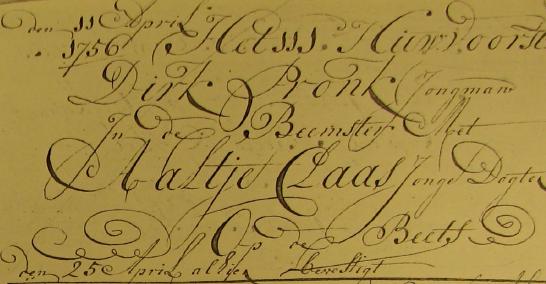 den 11 April
1756
Dirk Pronk Jongman
In de Beemster Met
Aaltje Claas Jonge Dogte
Op de Beets
den 25 April alhier bevestigt